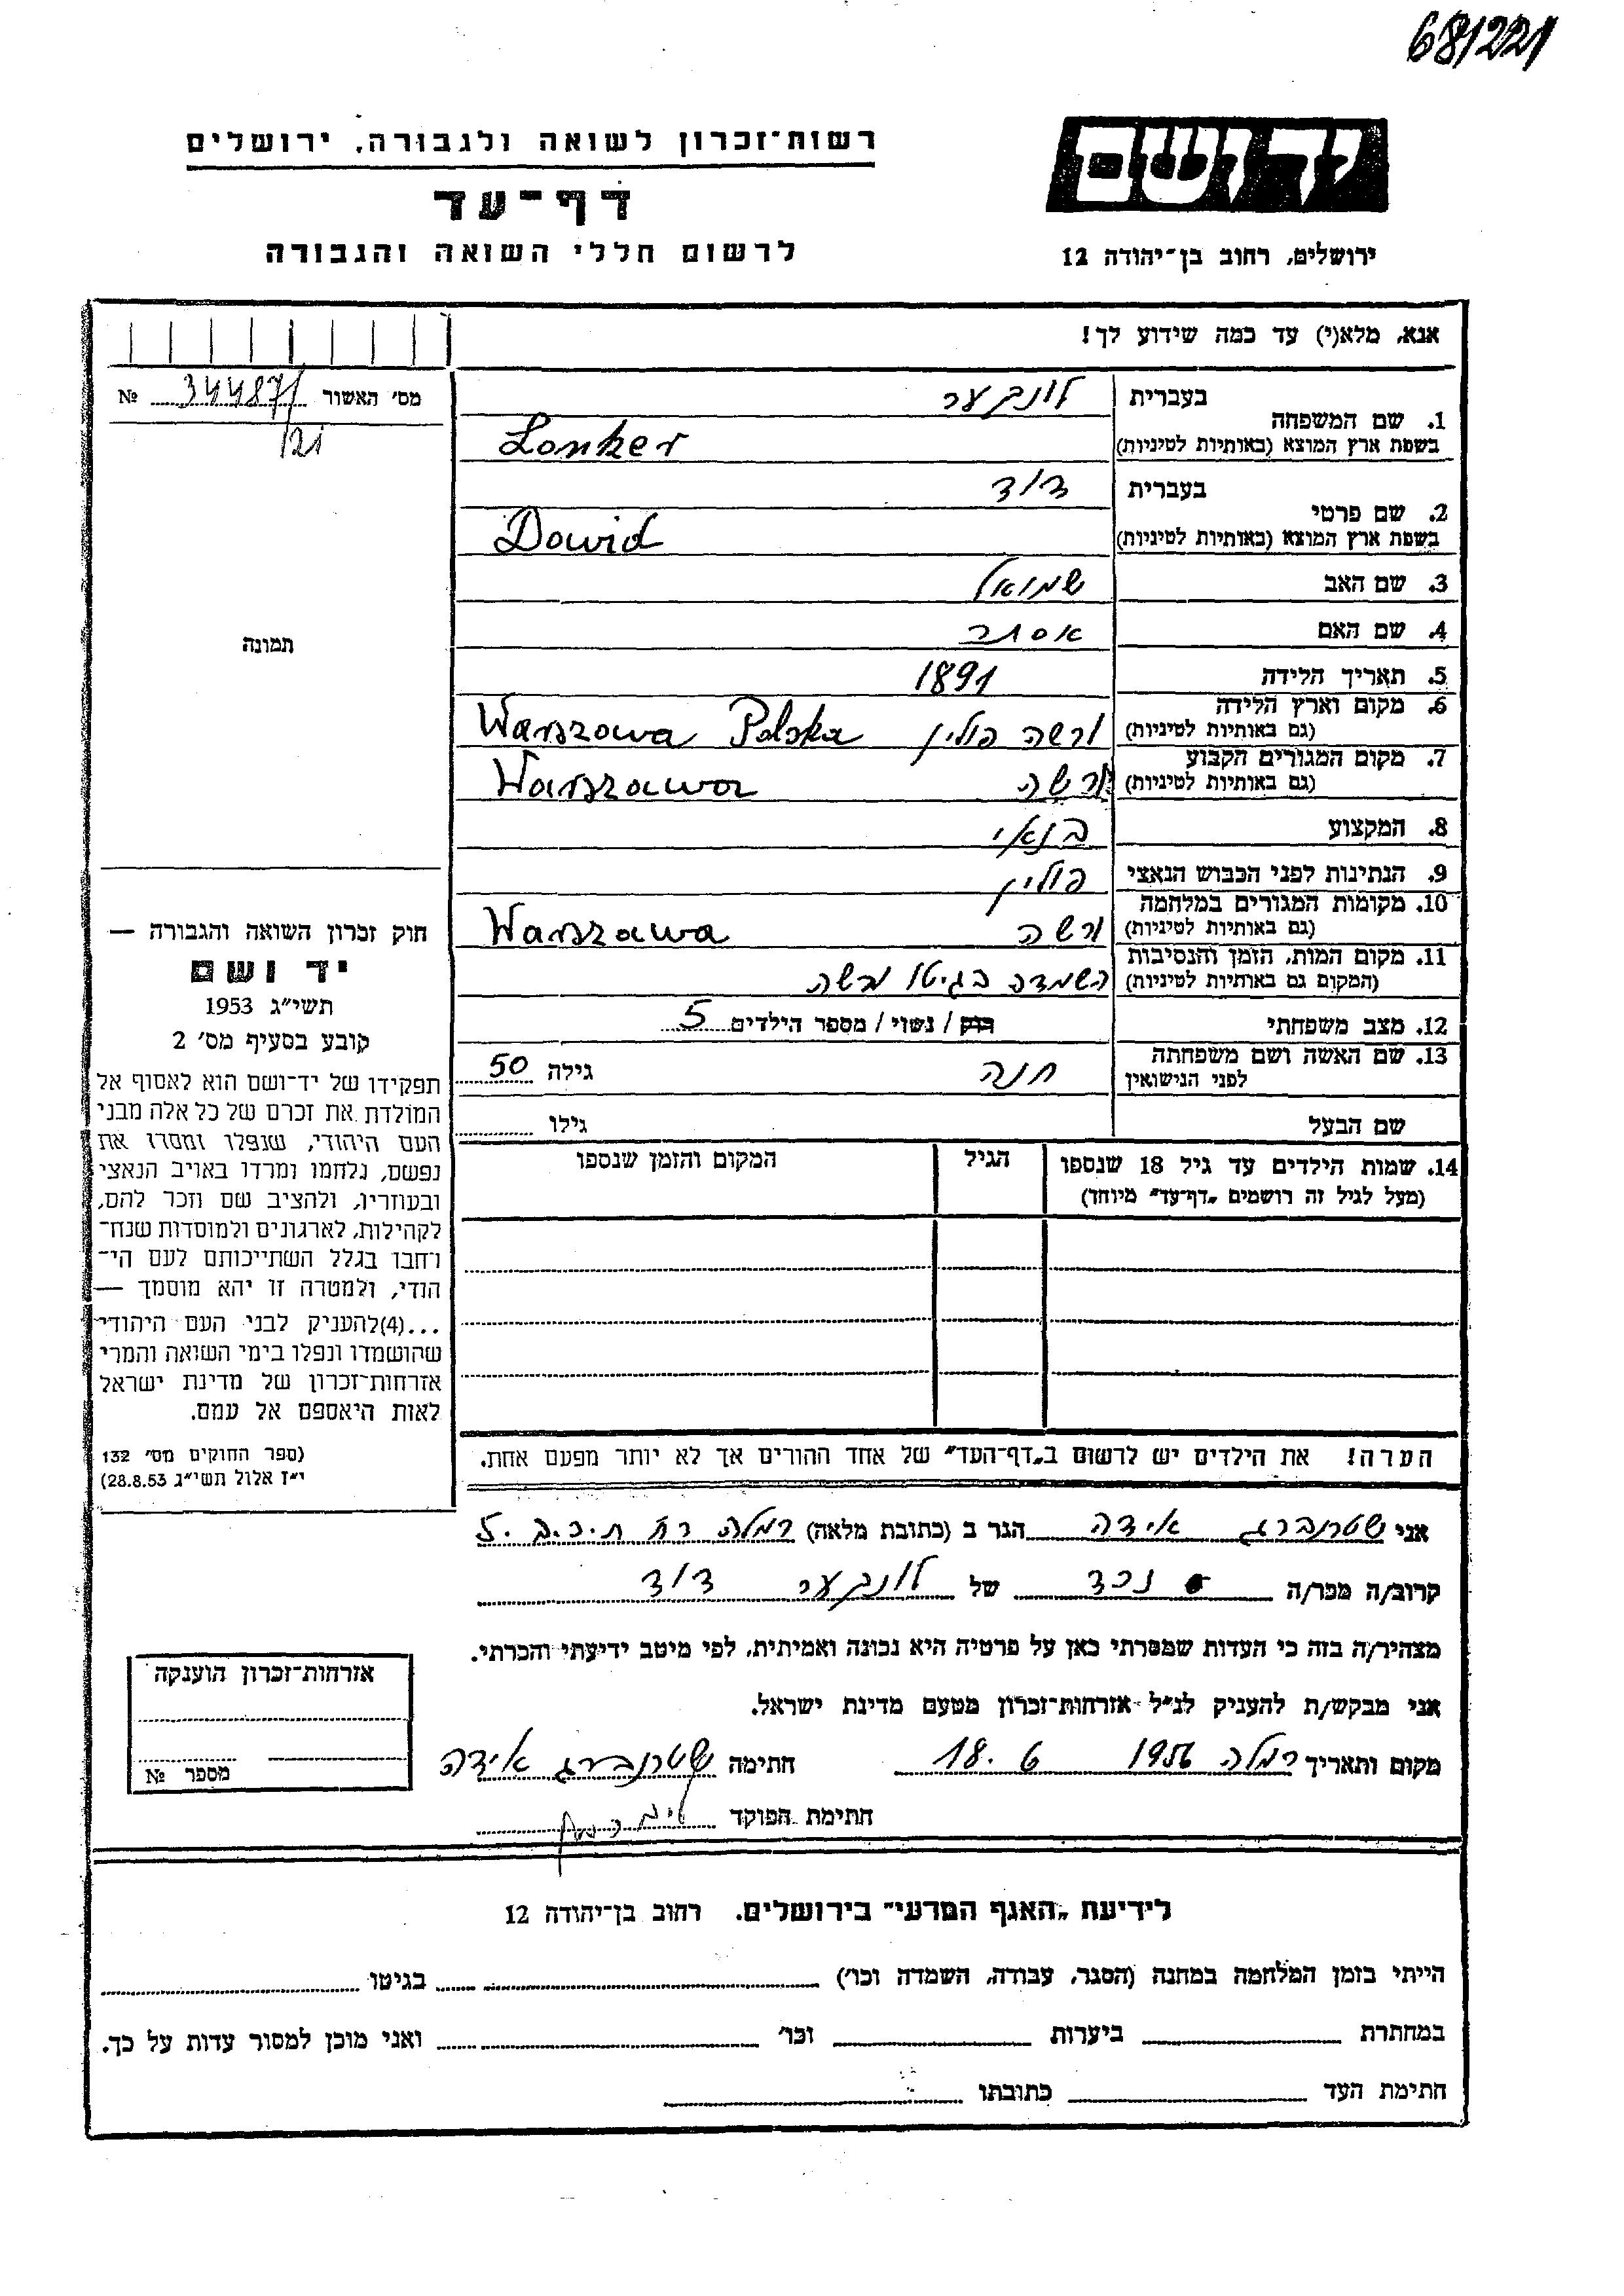 681221
רשות־זכרון לשואה ולגבורה, ירושלים
דף־עד
לרשום חללי השואה והגבורה
ידושם
ירושלים, רחוב בן־יהודה 12
אנא, מלא(י) עד כמה שידוע לך!
מס׳ האשור 344871 №
/21
תמונה
1. שם המשפחה
בעברית לונקער
בשפת ארץ המוצא (באותיות לטיניות) Lonker
2. שם פרטי
בעברית דוד
בשפת ארץ המוצא (באותיות לטיניות) Dawid
3. שם האב שמואל
4. שם האם אסתר
5. תאריך הלידה 1891
6. מקום וארץ הלידה
(גם באותיות לטיניות) ורשה פולין Warszowa Polska
7. מקום המגורים הקבוע
(גם באותיות לטיניות) ורשה Warszawa
8. המקצוע בנאי
9. הנתינות לפני הכבוש הנאצי פולין
10. מקומות המגורים במלחמה
(גם באותיות לטיניות) ורשה Warszawa
11. מקום המות, הזמן והנסיבות
(המקום גם באותיות לטיניות) השמדה בגיטו ורשה
12. מצב משפחתי רוק / נשוי / מספר הילדים 5
13. שם האשה ושם משפחתה
לפני הנישואין חנה גילה 50
שם הבעל גילו
14. שמות הילדים עד גיל 18 שנספו הגיל המקום והזמן שנספו
(מעל לגיל זה רושמים „דף־עד״ מיוחד)
הערה! את הילדים יש לרשום ב„דף־העד״ של אחד ההורים אך לא יותר מפעם אחת.
חוק זכרון השואה והגבורה —
יד ושם
תשי״ג 1953
קובע בסעיף מס׳ 2
תפקידו של יד־ושם הוא לאסוף אל
המולדת את זכרם של כל אלה מבני
העם היהודי, שנפלו ומסרו את
נפשם, נלחמו ומרדו באויב הנאצי
ובעוזריו, ולהציב שם וזכר להם,
לקהילות, לארגונים ולמוסדות שנח־
רבו בגלל השתייכותם לעם הי־
הודי, ולמטרה זו יהא מוסמך —
...(4)להעניק לבני העם היהודי
שהושמדו ונפלו בימי השואה והמרי
אזרחות־זכרון של מדינת ישראל
לאות היאספם אל עמם.
(ספר החוקים מס׳ 132
י״ז אלול תשי״ג 28.8.53)
אני שטרנברג אידה הגר ב (כתובת מלאה) רמלה רח
קרוב/ה מכר/ה נכד של לונקער דוד
מצהיר/ה בזה כי העדות שמסרתי כאן על פרטיה היא נכונה ואמיתית, לפי מיטב ידיעתי והכרתי.
אני מבקש/ת להעניק לנ״ל אזרחות־זכרון מטעם מדינת ישראל.
מקום ותאריך רמלה 1956 6 18. חתימה שטרנברג אידה
חתימת הפוקד
אזרחות־זכרון הוענקה
מספר №
לידיעת „האגף המדעי״ בירושלים. רחוב בן־יהודה 12
הייתי בזמן המלחמה במחנה (הסגר, עבודה, השמדה וכו׳) בגיטו
במחתרת ביערות וכו׳ ואני מוכן למסור עדות על כך.
חתימת העד כתובתו